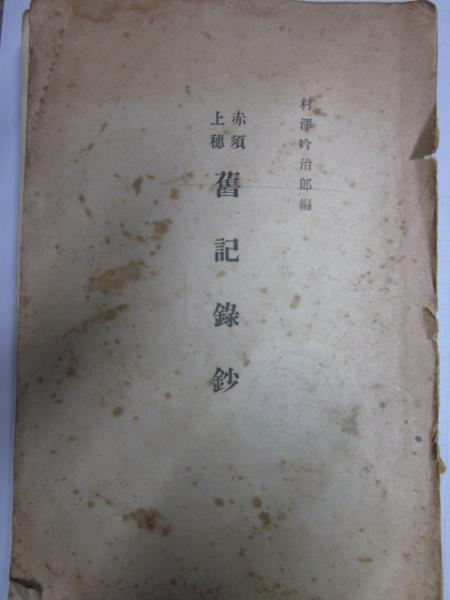 村澤吟治郎編
赤須
上穂
舊記錄鈔